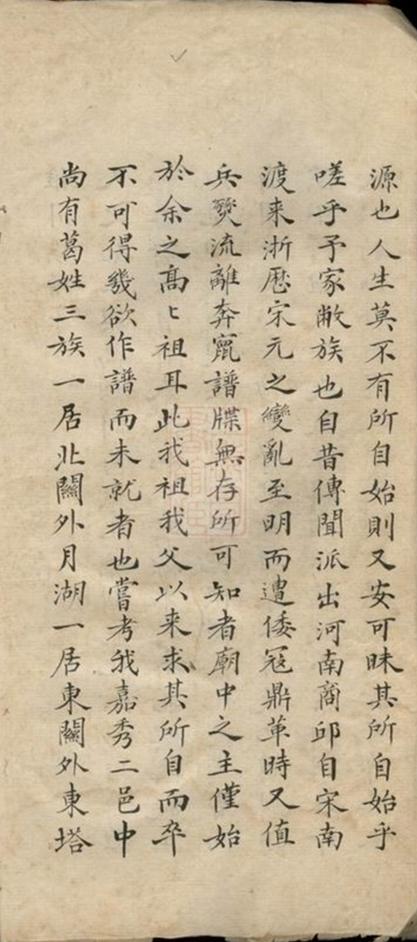 源也人生莫不有所自始則又安可昧其所自始乎
嗟乎予家敝族也自昔傳聞派出河南商邱自宋南
渡来浙歷宋元之變亂至明而遭倭冦鼎革時又值
兵燹流離奔竄譜牒無存所可知者廟中之主僅始
於余之髙〻祖耳此我祖我父以来求其所自而卒
不可得幾欲作譜而未就者也嘗考我嘉秀二邑中
尚有葛姓三族一居北關外月湖一居東關外東塔